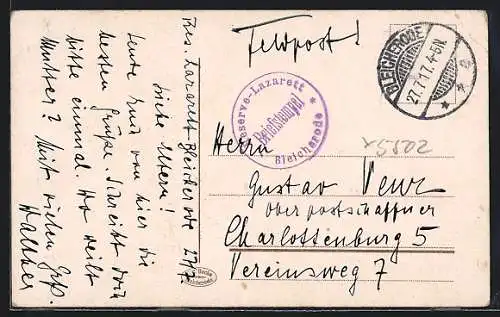 Res. Lazarett Bleicherode 27/7.
Liebe Eltern!
Heute Euch von hier die
besten Grüße. Schreibt doch
bitte einmal. Wo weilt
Mutter? Mit vielen Grß.
Walther
Feldpost!
BLEICHERODE
27.7.17. 4-5N.
* *
a
Reserve-Lazarett
Briefstempel
* Bleicherode *
Herrn
Gustav
Oberpostschaffner
Charlottenburg 5
Vereinsweg 7